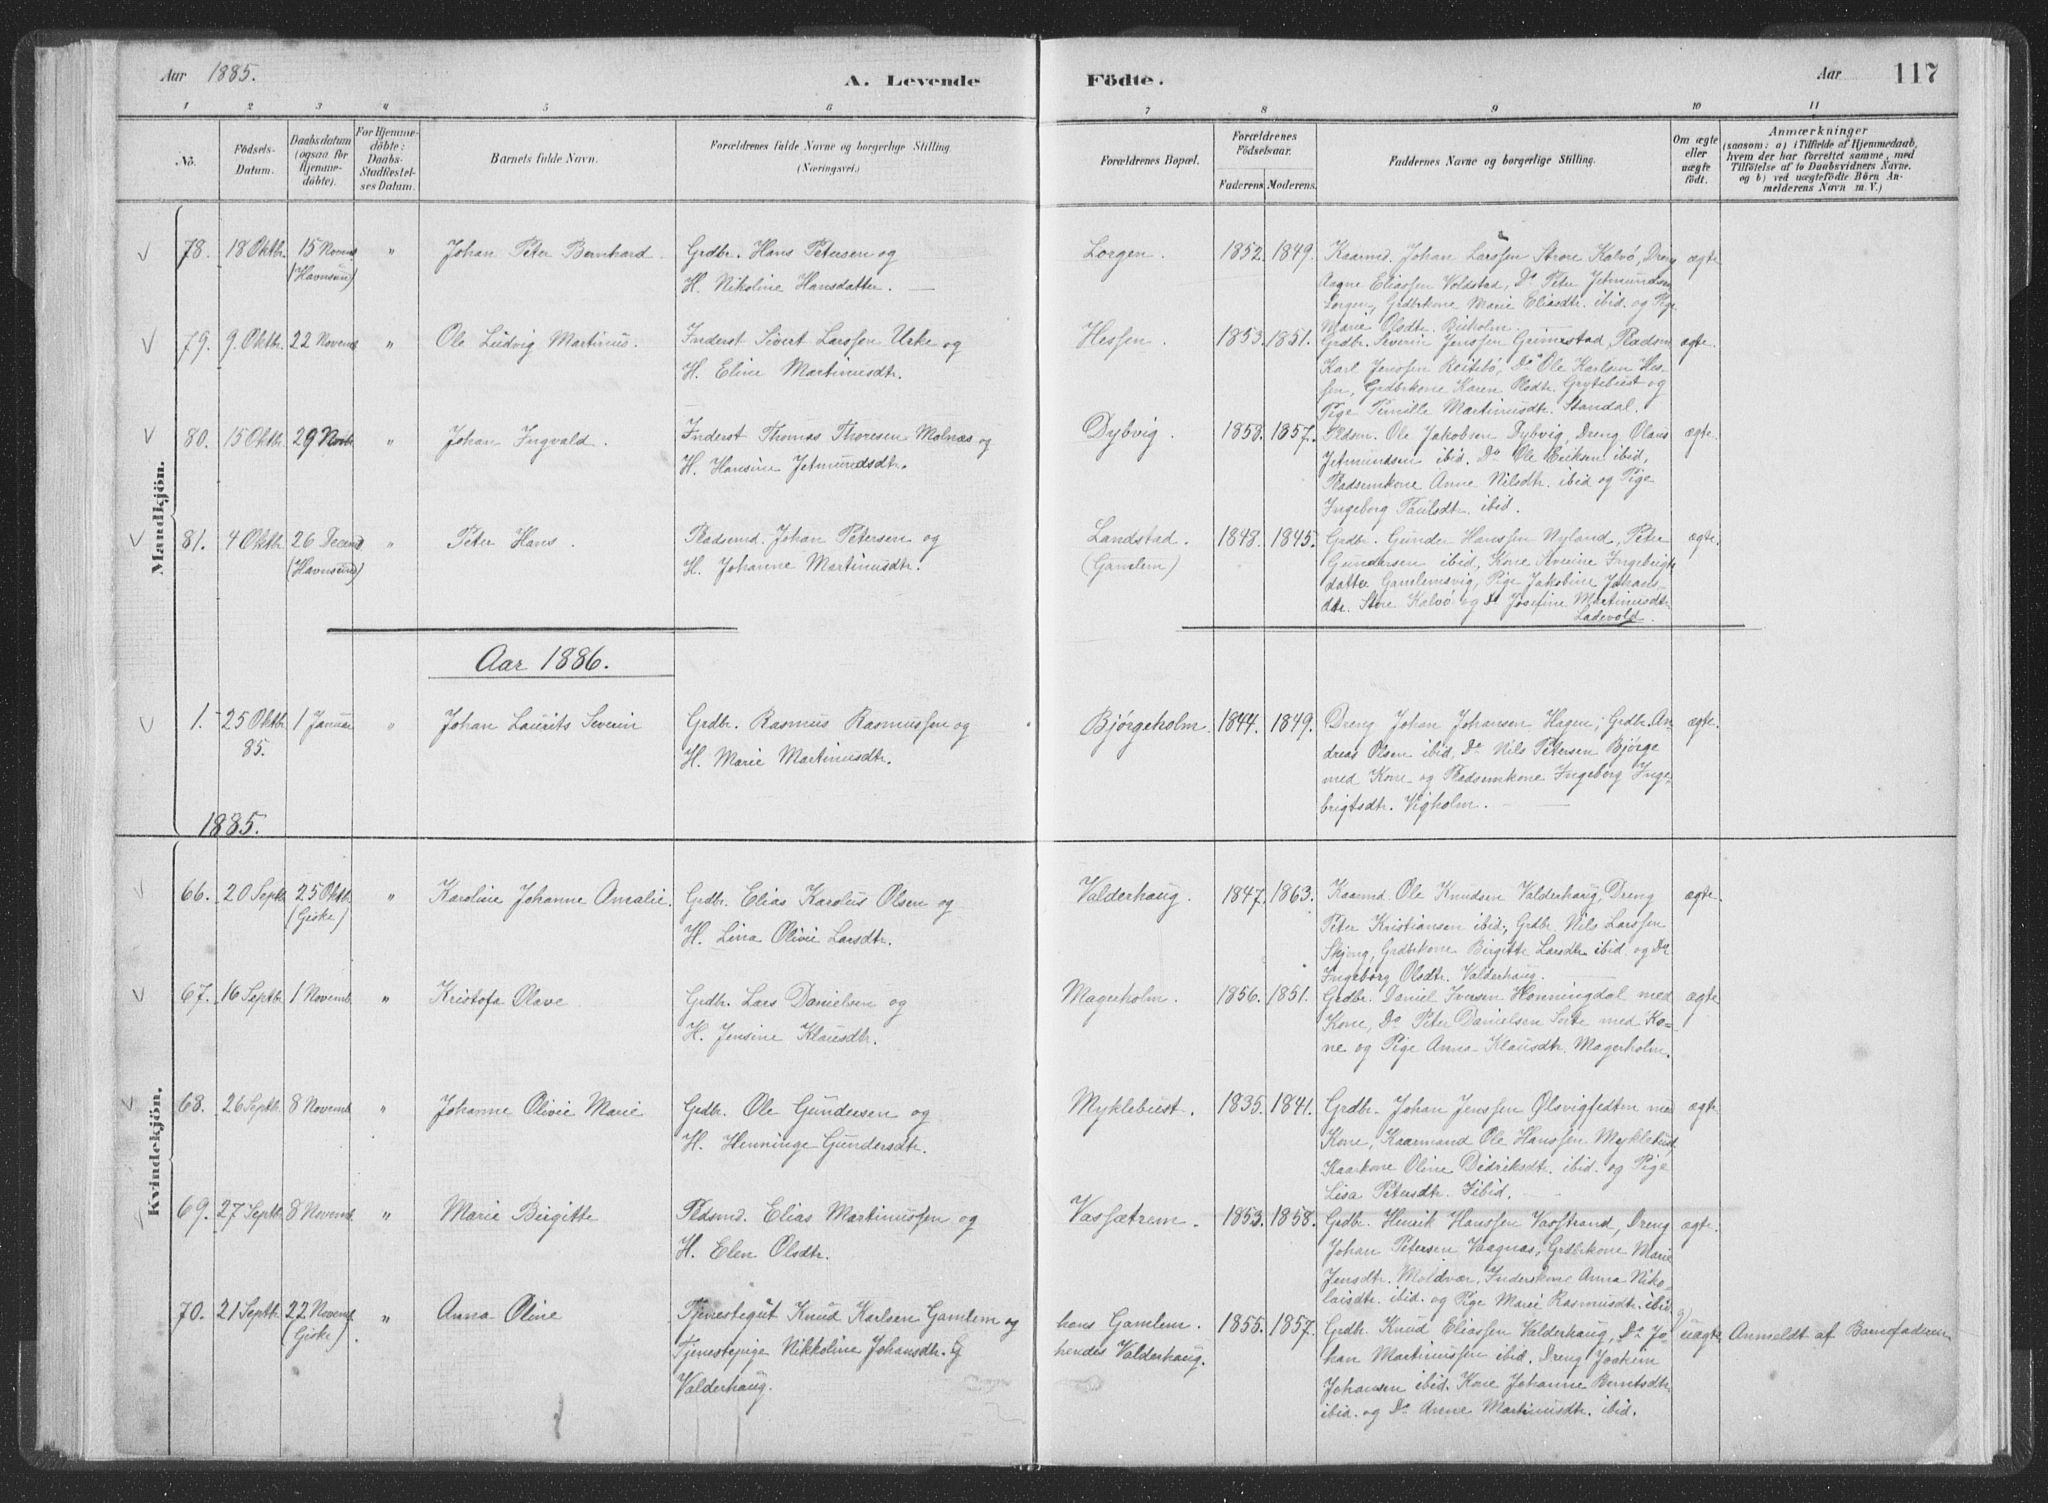 Aar 1885.
A. Levende Födte.
Aar 117
1 2 3 4 5 6 7 8 9 10 11
No.
Födsels-
Datum.
Daabsdatum
(ogsaa for
Hjemme-
döbte).
For Hjemme-
döbte:
Daabs-
Stadfæstel-
ses Datum.
Barnets fulde Navn.
Forældrenes fulde Navne og borgerlige Stilling
(Næringsvei.)
Forældrenes Bopæl.
Forældrenes
Födselsaar.
Faderens. Moderens.
Faddernes Navne og borgerlige Stilling.
Om ægte
eller
uægte
födt.
Anmærkninger
(saasom: a) i Tilfælde af Hjemmedaab,
hvem der har forrettet samme, med
Tilföielse af to Daabsvidners Navne,
og b) ved uægtefödte Börn An-
melderens Navn m. V.)
Mandkjön.
78. 18 Oktbr. 15 Novemb (Havnsund) " Johan Peter Bernhard.
Grdbr. Hans Petersen og
H. Nikoline Hansdatter.
Lorgen. 1852. 1849.
Kaarmd. Johan Larssen Store Kalvö, Dreng ægte
Aagne Eliassen Voldstad, Do Peter Jetmundsen
Lorgen, Grdbrkone Marie Eliasdtr. ibid. og Pige
Marie Olsdtr. Buholm.
79. 9. Oktbr. 22 Novemb " Ole Ludvig Martinus.
Inderst Sivert Larssen Urke og
H. Eline Martinusdtr.
Hessen. 1853. 1851.
Grdbr. Severin Jenssen Grimestad, Pladsm. ægte.
Karl Jenssen Reitebö, Do Ole Karlsen Hes-
sen, Grdbrkone Karen Olsdtr. Grytebust og
Pige Pernille Martinusdtr. Standal.
80. 15 Oktbr. 29 Novb. " Johan Ingvald.
Inderst Thomas Thoresen Molnæs og
H. Hansine Jetmundsdtr.
Dybvig. 1858. 1857.
Pldsm. Ole Jakobsen Dybvig, Dreng Olaus ægte
Jetmundsen ibid. Do Ole Eriksen ibid,
Pladsemkone Anne Nilsdtr. ibid og Pige
Ingeborg Paulsdtr. ibid.
81. 4 Oktbr. 26 Decemb (Havnsund) " Peter Hans.
Pladsmd. Johan Petersen og
H. Johanne Martinusdtr.
Landstad. (Gamlem) 1848. 1845.
Grdbr. Gunder Hanssen Nyland, Peter ægte.
Gundersen ibid, Kone Ingebrigts
datter Gamlemsvig, Pige Jakobine Johans-
dtr. Store Kalvö og Do Josefine Martinusdtr.
Ladevold.
Aar 1886.
1. 25 Oktbr. 85. 1 Januar " Johan Laurits Severin
Grdbr. Rasmus Rasmussen og
H. Marie Martinusdtr.
Bjørgeholm. 1844. 1849.
Dreng Johan Johansen Hagen; Grdbr. An- ægte.
dreas Olsen ibid, Do Nils Petersen Bjørge
med Kone og Pladsemkone Ingeborg Inge-
brigtsdtr. Vigholm.
1885.
Kvindekjön.
66. 20 Septbr. 25 Oktbr. (Giske) " Karoline Johanne Amalie.
Grdbr. Elias Karolus Olsen og
H. Lina Olivie Larsdtr.
Valderhaug. 1847. 1863.
Kaarmd. Ole Knudsen Valderhaug, Dreng ægte.
Peter Kristiansen ibid; Grdbr. Nils Larssen
Skjong, Grdbrkone Birgitte Larsdtr. ibid. og Do
Ingeborg Olsdtr. Valderhaug.
67. 16 Septbr. 1 Novemb. " Kristofa Olave
Grdbr. Lars Danielsen og
H. Jensine Klausdtr.
Magerholm. 1856. 1851.
Grdbr. Daniel Iversen Honningdal med ægte
Kone, Do Peter Danielsen Sorte med Ko-
ne og Pige Anna Klausdtr. Magerholm.
68. 26 Septbr. 8 Novemb. " Johanne Olivie Marie
Grdbr. Ole Gundersen og
H. Henninge Gundersdtr.
Myklebust. 1835. 1841.
Grdbr. Johan Jenssen Ølsvigfedten med ægte
Kone, Kaarmand Ole Hanssen Myklebust,
Kaarkone Oline Didriksdtr. ibid. og Pige
Lisa Petersdtr. Ibid.
69. 27 Septbr. 8 Novemb. " Marie Birgitte
Pldsmd. Elias Martinussen og
H. Elen Olsdtr.
Vassætrem. 1853. 1858.
Grdbr. Henrik Hanssen Vasstrand, Dreng ægte.
Johan Petersen Vaagnæs, Grdbrkone Marie
Jensdtr. Moldvær, Inderskone Anna Niko-
laisdtr. ibid. og Pige Marie Rasmusdtr. ibid.
70. 21 Septbr. 22 Novemb. (Giske) " Anna Oline
Tjenestegut Knud Karlsen Gamlem og
Tjenestepige Nikkoline Johansdtr.
Valderhaug.
hans Gamlem.
hendes Valderhaug.
1855. 1857.
Grdbr. Knud Eliassen Valderhaug, Do Jo- uægte Anmeldt af Barnefaderen
han Martinussen ibid. Dreng Joakim
Johansen ibid. Kone Johanne Berntsdtr.
ibid. og Do Anne Martinusdtr. ibid.